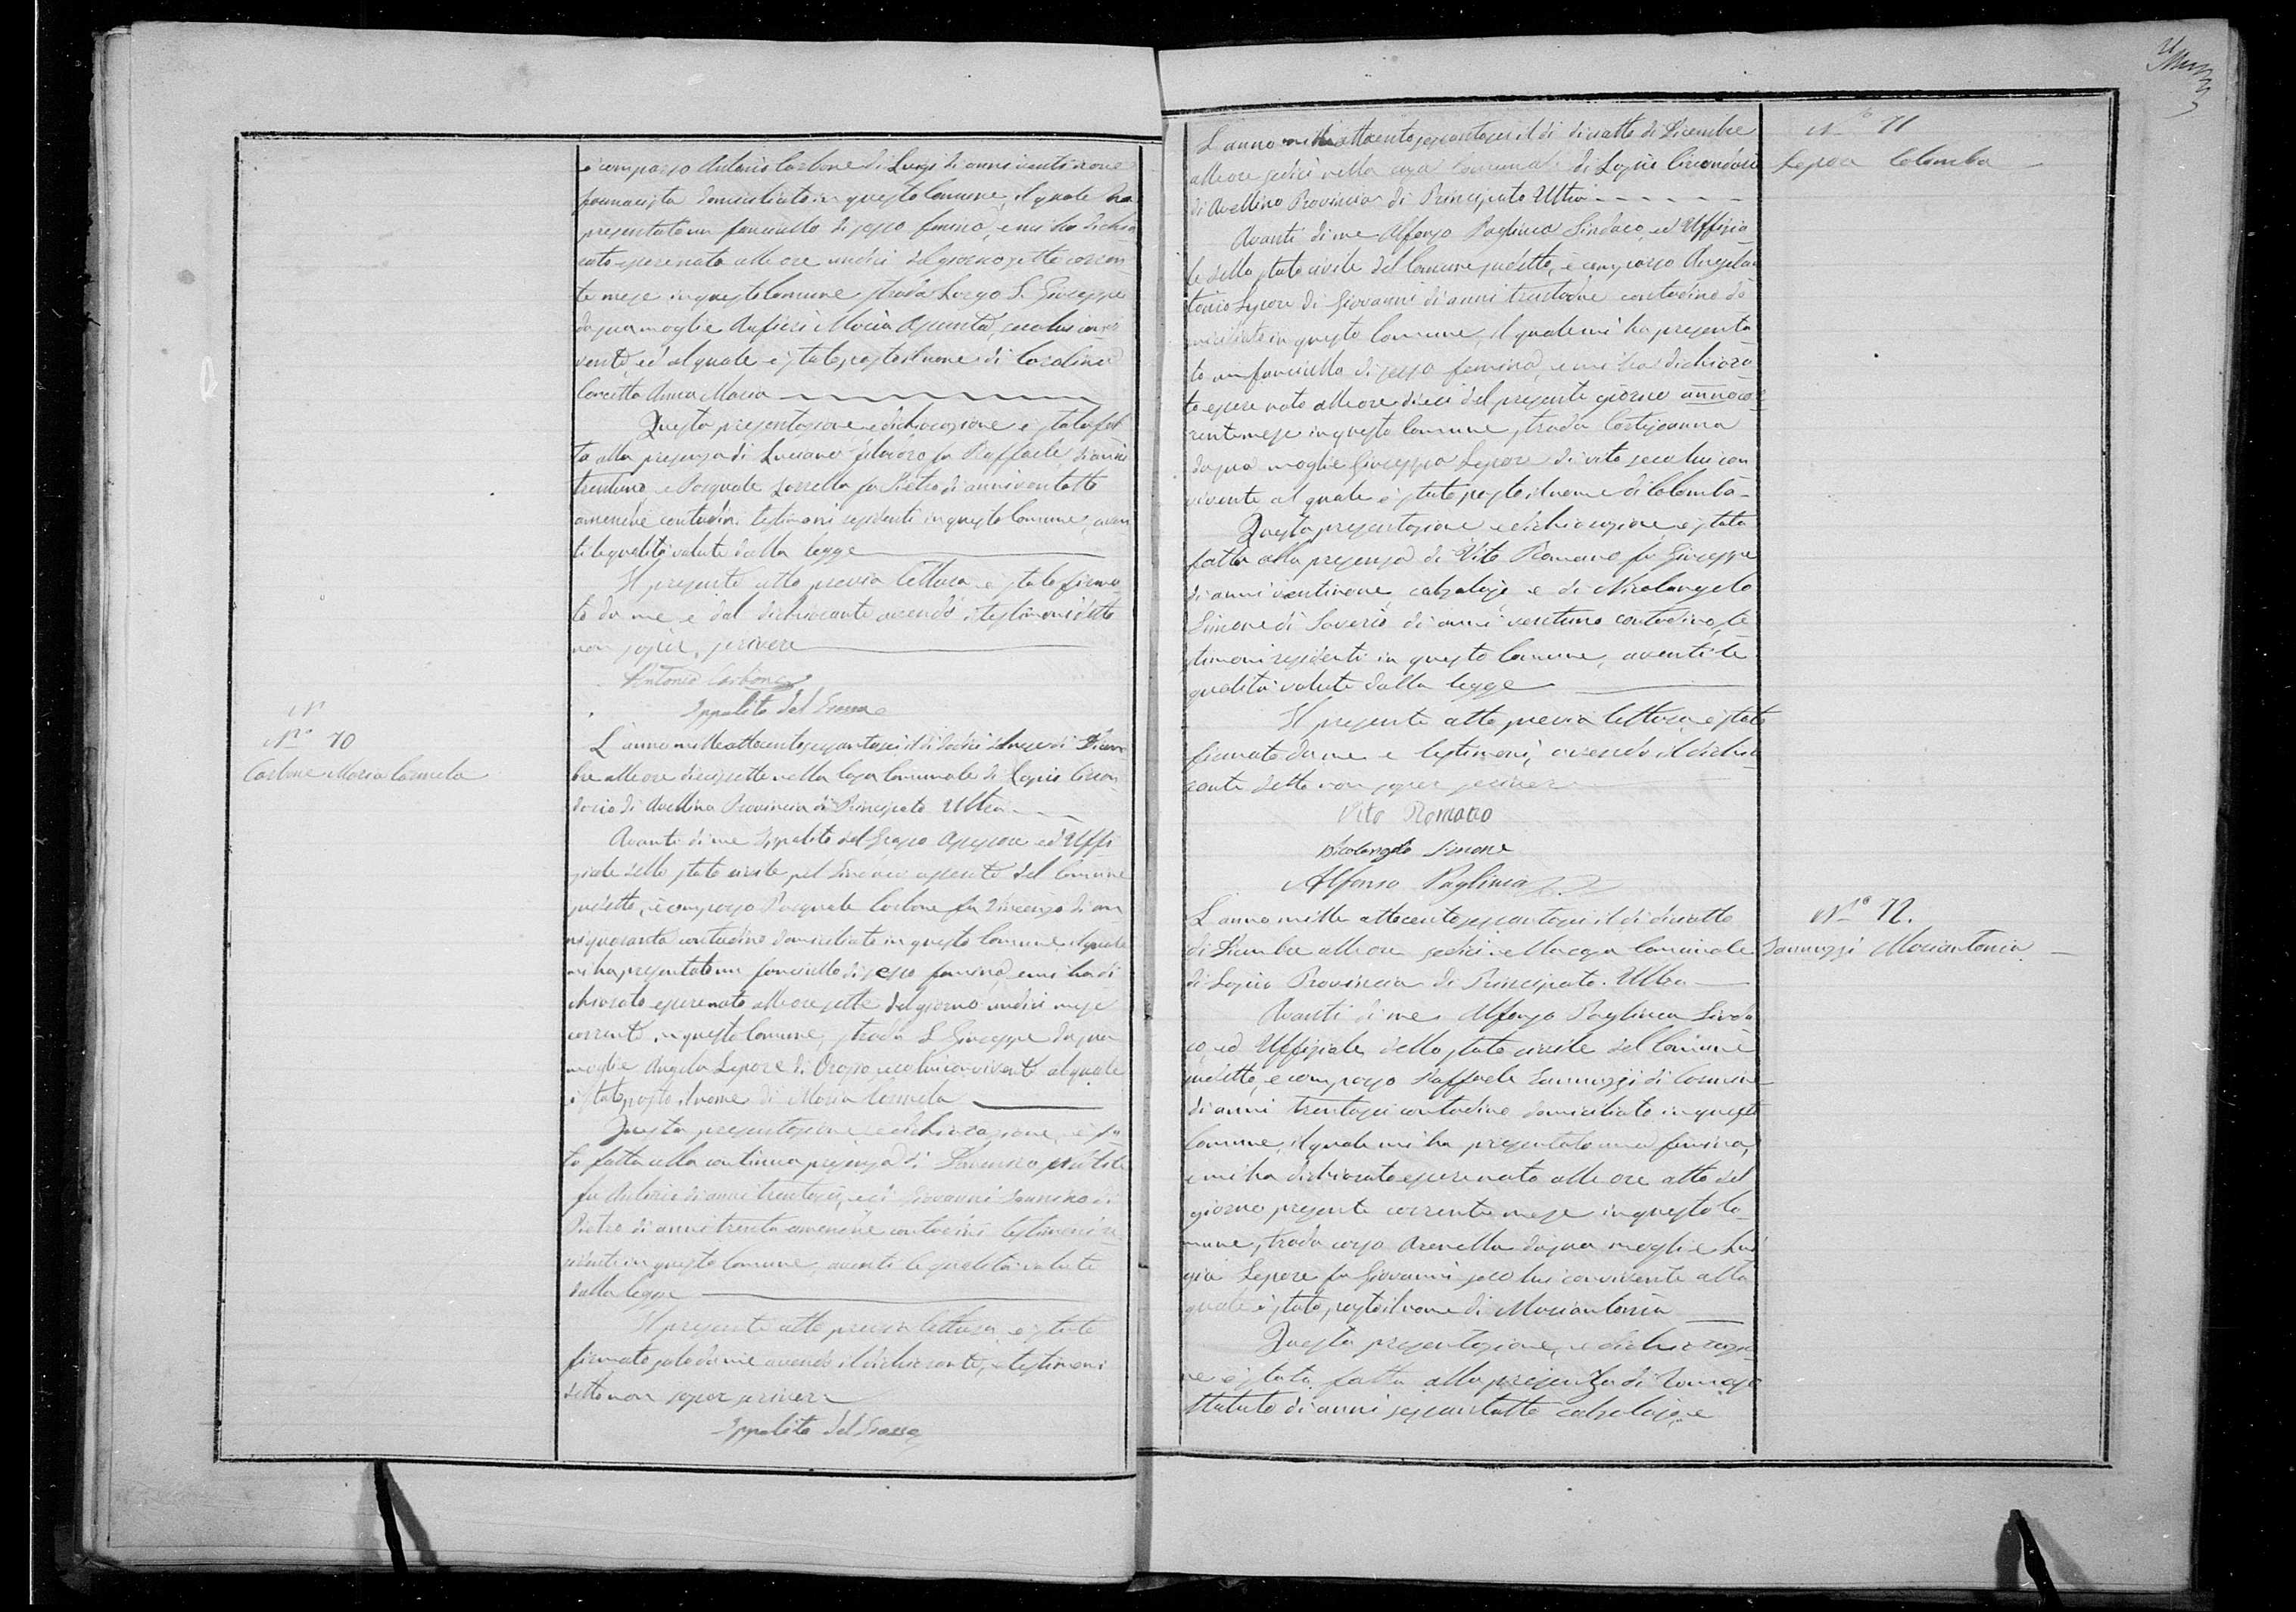 è comparso Antonio Carbone di Luigi di anni ventinove
farmacista domiciliato in questo Comune, il quale ha
presentato un fanciullo di sesso femino, e mi ha dichia
rato essere nato alle ore undici del giorno sette corren
te mese in questo Comune strada Largo S. Giuseppe
da sua moglie Maria Assunta, seco lui convi
vente, ed al quale è stato posto il nome di Carolina
Concetta Anna Maria
Questa presentazione e dichiarazione è stata fat
ta alla presenza di Luciano fu Raffaele di anni
trentuno, e Pasquale fu Pietro di anni ventotto
amendue contadini testimoni residenti in questo Comune, aven
ti le qualità volute dalla legge
Il presente atto previa lettura è stato firma
to da me e dal dichiarante avendo i testimoni detto
non saper scrivere
Antonio Carbone
Ippolito del Grosso
N.o 70
Carbone Maria Carmela
L'anno milleottocentosessantasei il dì dodici del mese di Dicem
bre alle ore diecissette nella Casa Comunale di Lapio Circon
dario di Avellino Provincia di Principato Ultra
Avanti di me Ippolito del Grosso Assessore ed Uffi
ziale dello stato civile pel Sindaco assente del Comune
sudetto, è comparso Pasquale Carbone fu Vincenzo di an
ni quaranta contadino domiciliato in questo Comune, il quale
mi ha presentato un fanciullo di sesso femino, e mi ha di
chiarato essere nato alle ore sette del giorno undici mese
corrente in questo Comune, strada S. Giuseppe da sua
moglie Angela Lepore di Orazio, seco lui convivente al quale
è stato posto il nome di Maria Carmela
Questa presentazione e dichiarazione, è sta
ta fatta alla continua presenza di
fu Antonio di anni trentasei, e di Giovanni di
Pietro di anni trenta amendue contadini testimoni re
sidenti in questo Comune, aventi le qualità volute
dalla legge
Il presente atto previa lettura è stato
firmato solo da me avendo il dichiarante, e testimoni
detto non saper scrivere
Ippolito del Grosso
N.o 71
Lepore Colomba
L'anno milleottocentosessantasei il dì diciotto di Dicembre
alle ore sedici nella casa comunale di Lapio Circondario
di Avellino Provincia di Principato Ultra
Avanti di me Alfonso Paglinca Sindaco, ed Uffizia
le dello stato civile del Comune sudetto, è comparso Angelan
tonio Lepore di Giovanni di anni trentadue contadino do
miciliato in questo Comune, il quale mi ha presenta
to un fanciullo di sesso femino, e mi ha dichiara
to essere nato alle ore dieci del presente giorno anno co
rrente mese in questo Comune, strada
da sua moglie Giuseppa Lepore di Vito seco lui con
vivente al quale è stato posto il nome di Colomba
Questa presentazione e dichiarazione è stata
fatta alla presenza di Vito Romano fu Giuseppe
di anni ventinove calzolajo e di Nicolangelo
Simone di Saverio di anni ventuno contadino, te
stimoni residenti in questo Comune, aventi le
qualità volute dalla legge
Il presente atto previa lettura è stato
firmato da me e testimoni, avendo il dichia
rante detto non saper scrivere
Vito Romano
Nicolangelo Simone
Alfonso Paglinca
N.o 72.
Iannuzzi Mariantonia
L'anno mille ottocentosessantasei il dì diciotto
di Dicembre alle ore sedici nella casa Comunale
di Lapio Provincia di Principato Ultra
Avanti di me Alfonso Paglinca Sinda
co, ed Uffiziale dello stato civile del Comune
sudetto, è comparso Raffaele Iannuzzi di
di anni trentasei contadino domiciliato in questo
Comune, il quale mi ha presentato una femina,
e mi ha dichiarato essere nata alle ore otto del
giorno presente corrente mese in questo Co
mune, strada corso Arenella da sua moglie Lui
gia Lepore fu Giovanni seco lui convivente alla
quale è stato posto il nome di Mariantonia
Questa presentazione, e dichiarazio
ne è stata fatta alla presenza di Tomaso
Statuto di anni sessantotto calzolajo, e